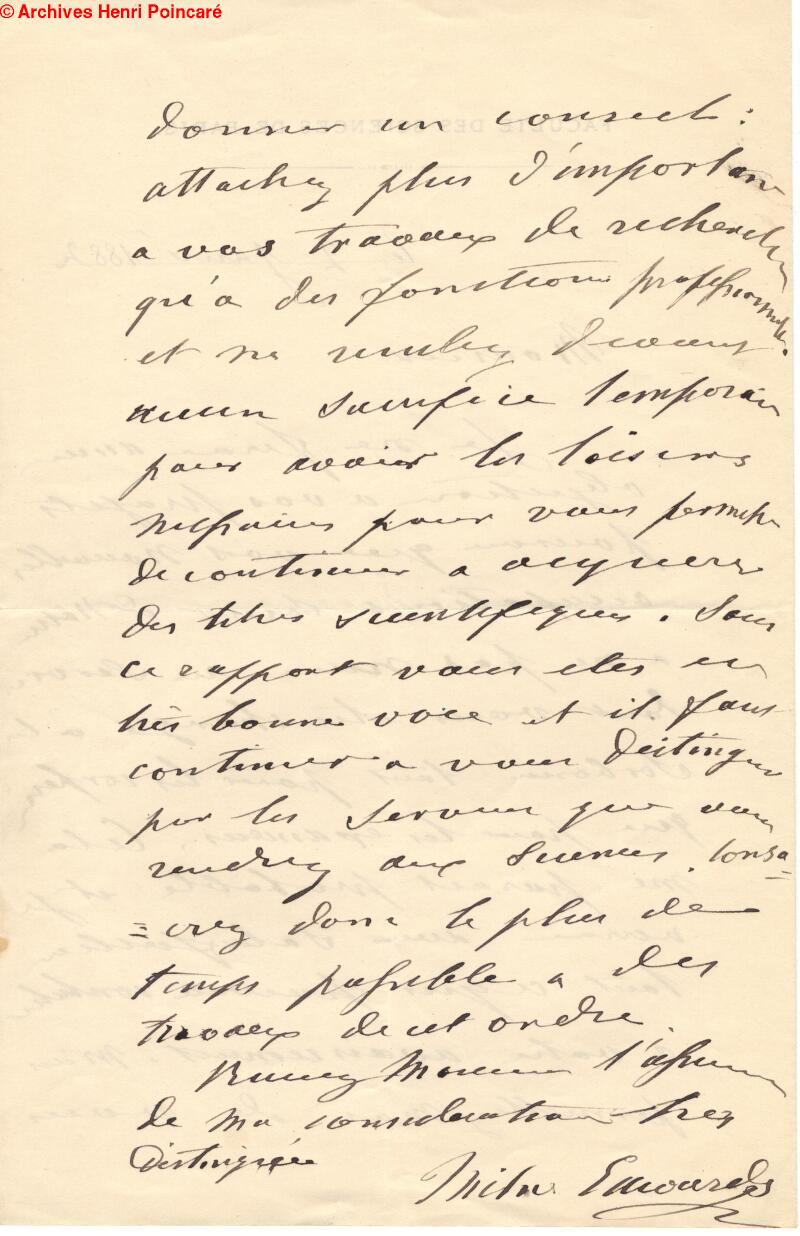 © Archives Henri Poincaré
donner un conseil :
attachez plus d'importance
a vos travaux de recherches
qu'a des fonctions professionnelles.
et ne reculez devant
aucun sacrifice temporaire
pour avoir les loisirs
necessaires pour vous permettre
de continuer a acquerir
des titres scientifiques. Sous
ce rapport vous etes en
très bonne voie et il faut
continuer a vous distinguer
par les services que vous
rendrez aux Sciences. Consa=
=crez donc le plus de
temps possible a des
travaux de cet ordre.
Recevez Monsieur l'assurance
de ma consideration tres
distinguée
Milne Edwards